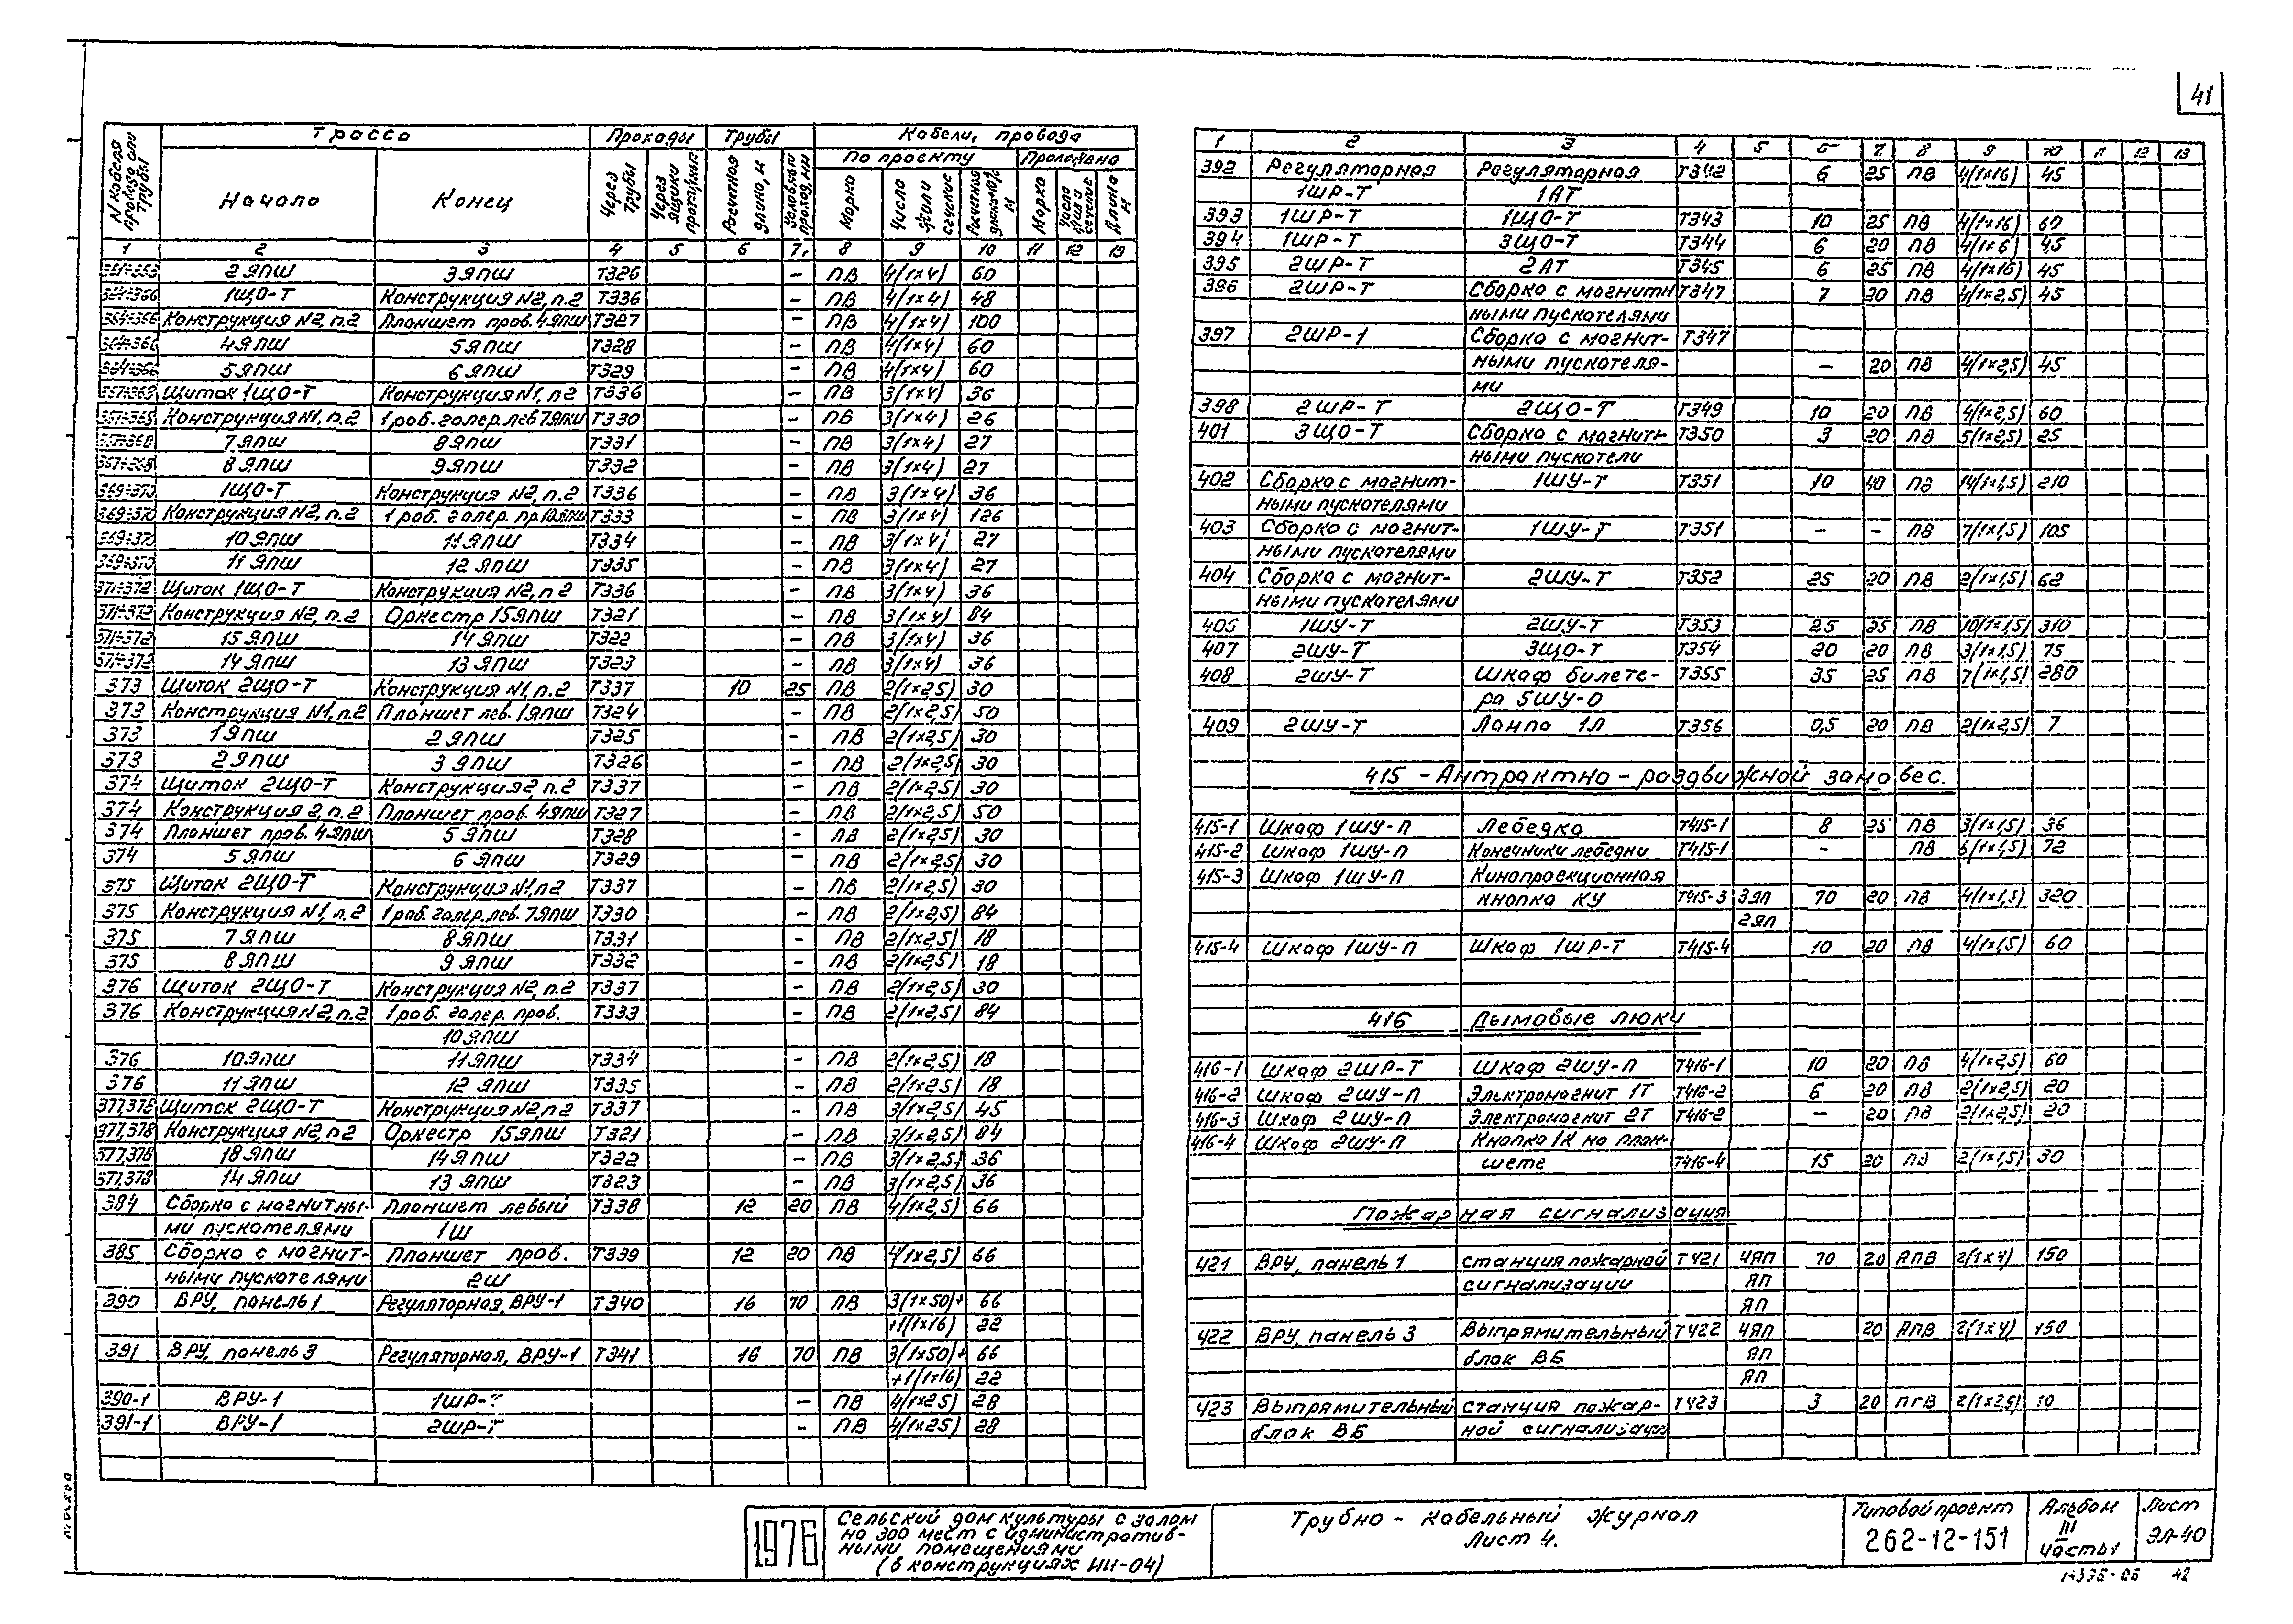 41
Трасса Проходы Трубы Кабели, провода
N кабеля провода или трубы Начало Конец Через трубы Через ящики протяжные Расчетная длина, м Условный проход, мм По проекту Проложено
Марка Число жил и сечение Расчетная длина м Марка Число жил и сечение Длина м
1 2 3 4 5 6 7 8 9 10 11 12 13
2ЯПШ 3ЯПШ Т326 – ПВ 4(1×4) 60
1ЩО-Т Конструкция N2, п.2 Т336 – ПВ 4(1×4) 48
364÷366 Конструкция N2, п.2 Планшет прав. 4ЯПШ Т327 – ПВ 4(1×4) 100
364÷366 4ЯПШ 5ЯПШ Т328 – ПВ 4(1×4) 60
364÷366 5ЯПШ 6ЯПШ Т329 – ПВ 4(1×4) 60
367÷368 Щиток 1ЩО-Т Конструкция N1, п2 Т336 – ПВ 3(1×4) 36
367÷368 Конструкция N1, п.2 1 раб. галер. лев 7ЯПШ Т330 – ПВ 3(1×4) 26
367÷368 7ЯПШ 8ЯПШ Т331 – ПВ 3(1×4) 27
367÷368 8ЯПШ 9ЯПШ Т332 – ПВ 3(1×4) 27
369÷370 1ЩО-Т Конструкция N2, п.2 Т336 – ПВ 3(1×4) 36
369÷370 Конструкция N2, п.2 1 раб. галер. пр. 10ЯПШ Т333 – ПВ 3(1×4) 126
369÷370 10ЯПШ 11ЯПШ Т334 – ПВ 3(1×4) 27
369÷370 11ЯПШ 12ЯПШ Т335 – ПВ 3(1×4) 27
371÷372 Щиток 1ЩО-Т Конструкция N2, п 2 Т336 – ПВ 3(1×4) 36
371÷372 Конструкция N2, п.2 Оркестр 15ЯПШ Т321 – ПВ 3(1×4) 84
371÷372 15ЯПШ 14ЯПШ Т322 – ПВ 3(1×4) 36
371÷372 14ЯПШ 13ЯПШ Т323 – ПВ 3(1×4) 36
373 Щиток 2ЩО-Т Конструкция N1, п.2 Т337 10 25 ПВ 2(1×2,5) 30
373 Конструкция N1, п.2 Планшет лев. 1ЯПШ Т324 – ПВ 2(1×2,5) 50
373 1ЯПШ 2ЯПШ Т325 – ПВ 2(1×2,5) 30
373 2ЯПШ 3ЯПШ Т326 – ПВ 2(1×2,5) 30
374 Щиток 2ЩО-Т Конструкция 2, п.2 Т337 – ПВ 2(1×2,5) 30
374 Конструкция 2, п.2 Планшет прав. 4ЯПШ Т327 – ПВ 2(1×2,5) 50
374 Планшет прав. 4ЯПШ 5ЯПШ Т328 – ПВ 2(1×2,5) 30
374 5ЯПШ 6ЯПШ Т329 – ПВ 2(1×2,5) 30
375 Щиток 2ЩО-Т Конструкция N1, п2 Т337 – ПВ 2(1×2,5) 30
375 Конструкция N1, п.2 1 раб. галер. лев. 7ЯПШ Т330 – ПВ 2(1×2,5) 84
375 7ЯПШ 8ЯПШ Т331 – ПВ 2(1×2,5) 18
375 8ЯПШ 9ЯПШ Т332 – ПВ 2(1×2,5) 18
376 Щиток 2ЩО-Т Конструкция N2, п.2 Т337 – ПВ 2(1×2,5) 30
376 Конструкция N2, п.2 1 раб. галер. прав. Т333 – ПВ 2(1×2,5) 84
10ЯПШ
376 10ЯПШ 11ЯПШ Т334 – ПВ 2(1×2,5) 18
376 11ЯПШ 12ЯПШ Т335 – ПВ 2(1×2,5) 18
377,378 Щиток 2ЩО-Т Конструкция N2, п 2 Т337 – ПВ 3(1×2,5) 45
377,378 Конструкция N2, п2 Оркестр 15ЯПШ Т321 – ПВ 3(1×2,5) 84
377,378 18ЯПШ 14ЯПШ Т322 – ПВ 3(1×2,5) 36
377,378 14ЯПШ 13ЯПШ Т323 – ПВ 3(1×2,5) 36
384 Сборка с магнитны- Планшет левый Т338 12 20 ПВ 4(1×2,5) 66
ми пускателями 1Ш
385 Сборка с магнит- Планшет прав. Т339 12 20 ПВ 4(1×2,5) 66
ными пускателями 2Ш
390 ВРУ, панель 1 Регуляторная, ВРУ-1 Т340 16 70 ПВ 3(1×50)+ 66
+1(1×16) 22
391 ВРУ, панель 3 Регуляторная, ВРУ-1 Т341 16 70 ПВ 3(1×50)+ 66
+1(1×16) 22
390-1 ВРУ-1 1ШР-Т – ПВ 4(1×25) 28
391-1 ВРУ-1 2ШР-Т – ПВ 4(1×25) 28
1 2 3 4 5 6 7 8 9 10 11 12 13
392 Регуляторная Регуляторная Т342 6 25 ПВ 4(1×16) 45
1ШР-Т 1АТ
393 1ШР-Т 1ЩО-Т Т343 10 25 ПВ 4(1×16) 60
394 1ШР-Т 3ЩО-Т Т344 6 20 ПВ 4(1×6) 45
395 2ШР-Т 2АТ Т345 6 25 ПВ 4(1×16) 45
396 2ШР-Т Сборка с магнитн Т347 7 20 ПВ 4(1×2,5) 45
ными пускателями
397 2ШР-1 Сборка с магнит- Т347
ными пускателя- – 20 ПВ 4(1×2,5) 45
ми
398 2ШР-Т 2ЩО-Т Т349 10 20 ПВ 4(1×2,5) 60
401 3ЩО-Т Сборка с магнит- Т350 3 20 ПВ 5(1×2,5) 25
ными пускатели
402 Сборка с магнит- 1ШУ-Т Т351 10 40 ПВ 14(1×1,5) 210
ными пускателями
403 Сборка с магнит- 1ШУ-Т Т351 – – ПВ 7(1×1,5) 105
ными пускателями
404 Сборка с магнит- 2ШУ-Т Т352 25 20 ПВ 2(1×1,5) 62
ными пускателями
405 1ШУ-Т 2ШУ-Т Т353 25 25 ПВ 10(1×1,5) 310
407 2ШУ-Т 3ЩО-Т Т354 20 20 ПВ 3(1×1,5) 75
408 2ШУ-Т Шкаф билете- Т355 35 25 ПВ 7(1×1,5) 280
ра 5ШУ-О
409 2ШУ-Т Лампа 1Л Т356 0,5 20 ПВ 2(1×2,5) 7
415 – Антрактно – раздвижной занавес.
415-1 Шкаф 1ШУ-П Лебедка Т415-1 8 25 ПВ 3(1×1,5) 36
415-2 Шкаф 1ШУ-П Конечники лебедки Т415-1 – ПВ 6(1×1,5) 72
415-3 Шкаф 1ШУ-П Кинопроекционная
кнопка КУ Т415-3 3ЯП 70 20 ПВ 4(1×1,5) 320
2ЯП
415-4 Шкаф 1ШУ-П Шкаф 1ШР-Т Т415-4 10 20 ПВ 4(1×1,5) 60
416 Дымовые люки
416-1 Шкаф 2ШР-Т Шкаф 2ШУ-П Т416-1 10 20 ПВ 4(1×2,5) 60
416-2 Шкаф 2ШУ-П Электромагнит 1Т Т416-2 6 20 ПВ 2(1×2,5) 20
416-3 Шкаф 2ШУ-П Электромагнит 2Т Т416-2 – 20 ПВ 2(1×2,5) 20
416-4 Шкаф 2ШУ-П Кнопка 1К на план-
шете Т416-4 15 20 ПВ 2(1×1,5) 30
Пожарная сигнализация
421 ВРУ, панель 1 станция пожарной Т421 4ЯП 70 20 АПВ 2(1×4) 150
сигнализации ЯП
ЯП
422 ВРУ, панель 3 Выпрямительный Т422 4ЯП 20 АПВ 2(1×4) 150
блок ВБ ЯП
ЯП
423 Выпрямительный станция пожар- Т423 3 20 ПГВ 2(1×2,5) 10
блок ВБ ной сигнализации
1976
Сельский дом культуры с залом
на 300 мест с административ-
ными помещениями
(в конструкциях ИИ-04)
Трубно – кабельный журнал
Лист 4.
Типовой проект
262-12-151
Альбом
III
часть 1
Лист
ЭЛ-40
42